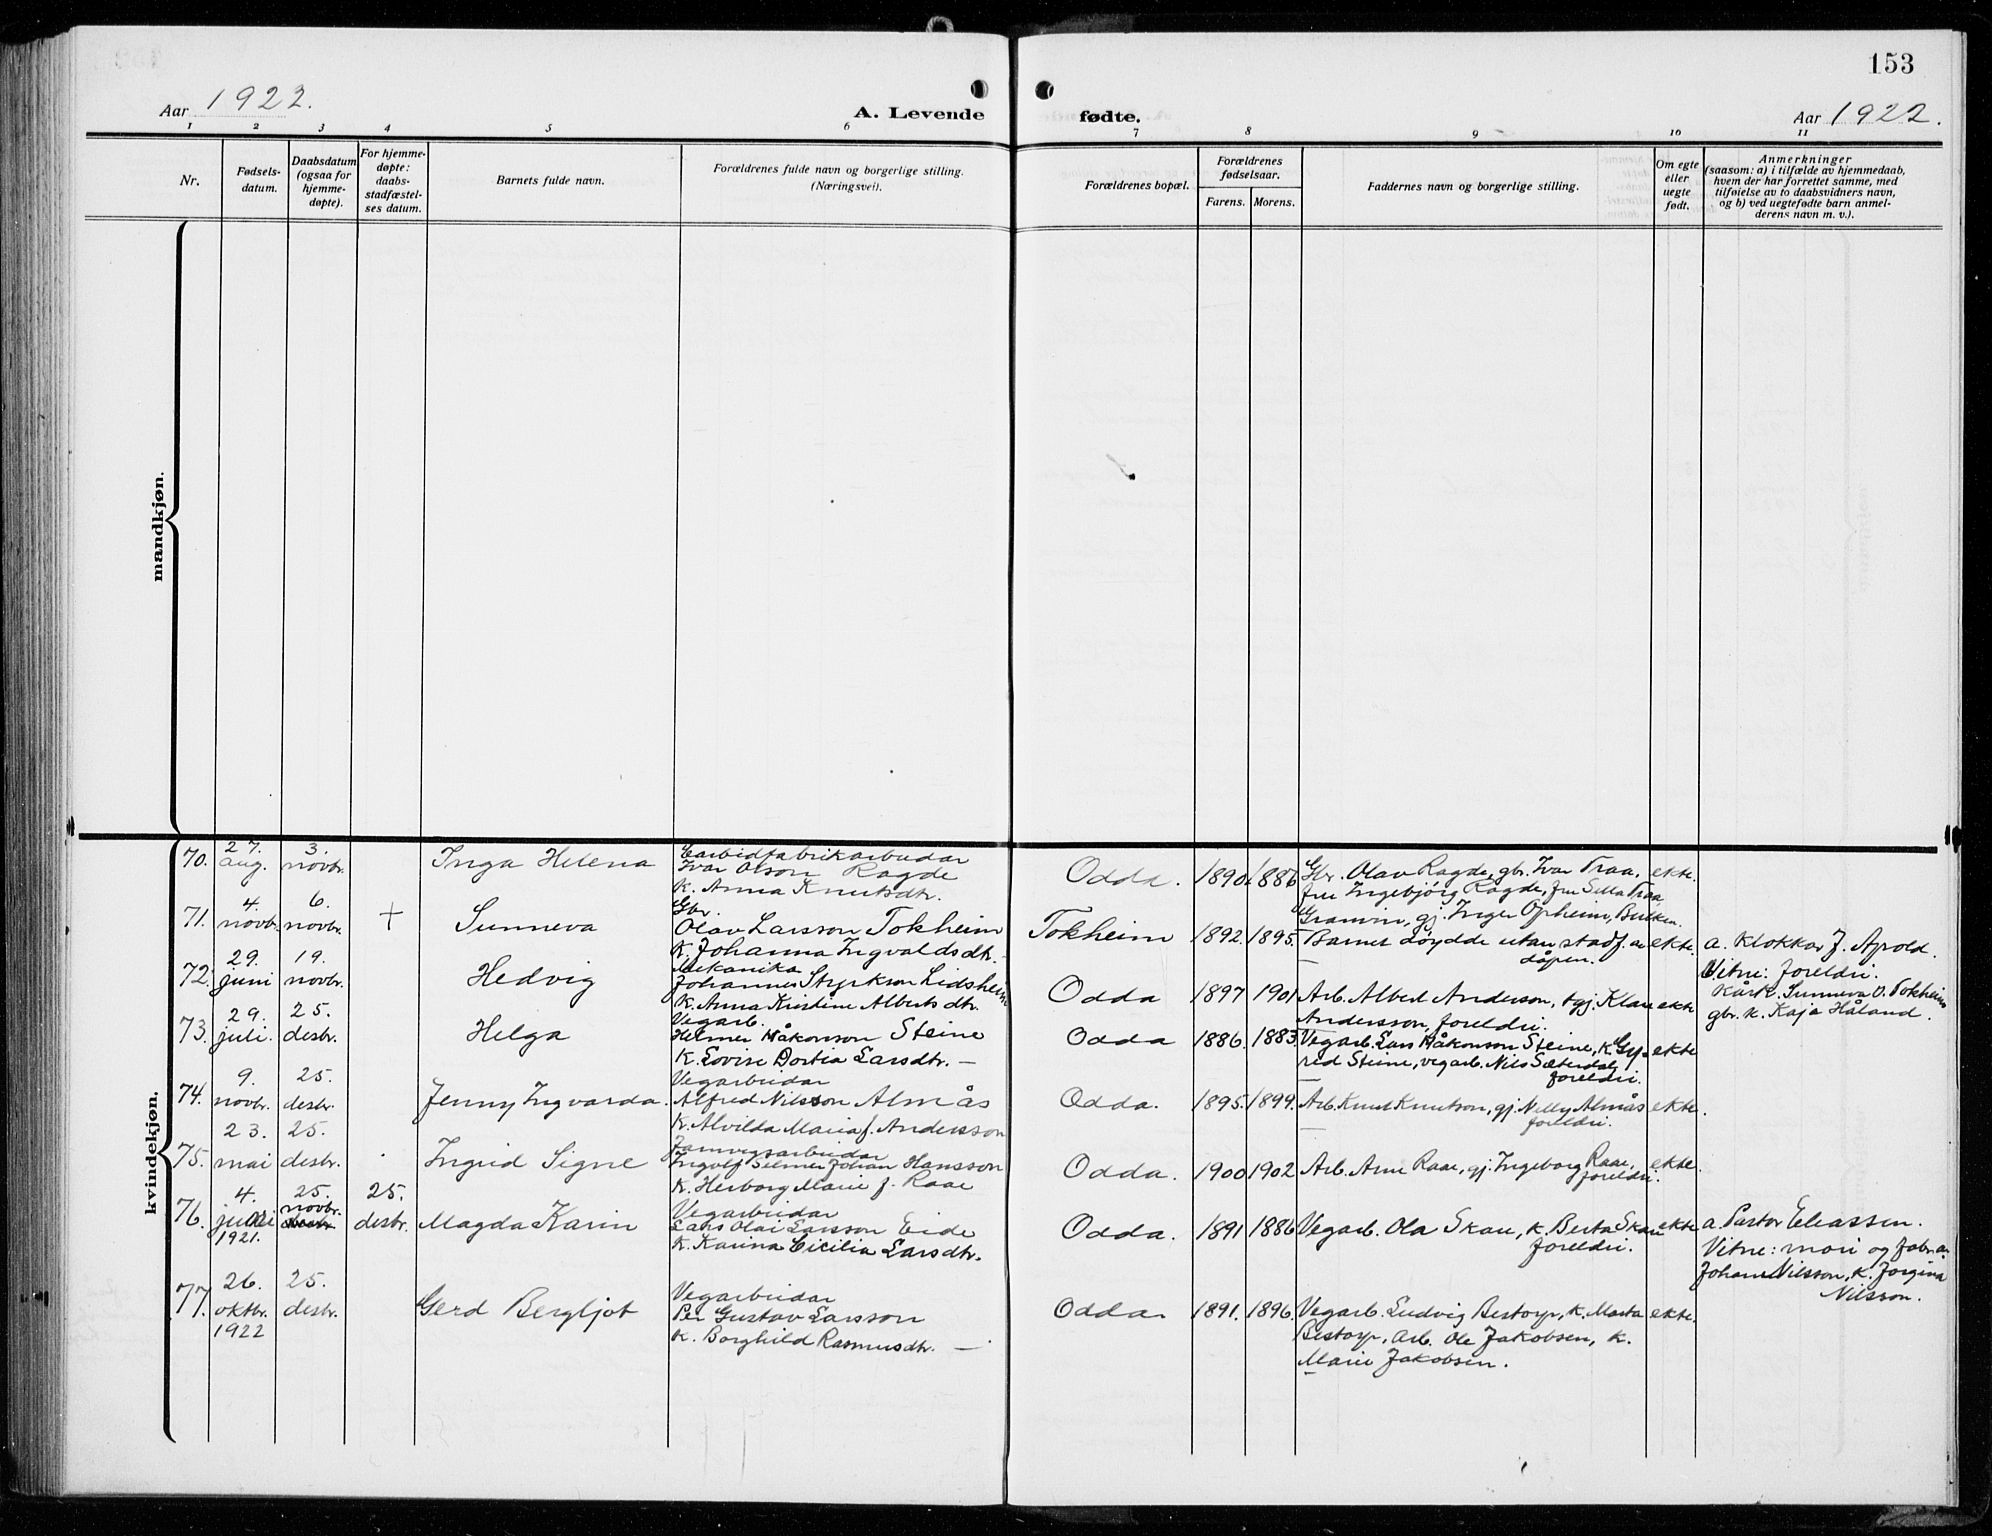 153
Aar 1922.
A. Levende fødte.
Aar 1922.
1 2 3 4 5 6 7 8 9 10 11
Nr.
Fødsels-
datum.
Daabsdatum
(ogsaa for
hjemme-
døpte).
For hjemme-
døpte:
daabs-
stadfæstel-
ses datum.
Barnets fulde navn.
Forældrenes fulde navn og borgerlige stilling.
(Næringsvei).
Forældrenes bopæl.
Forældrenes
fødselsaar.
Farens. Morens.
Faddernes navn og borgerlige stilling.
Om egte
eller
uegte
født.
Anmerkninger
(saasom: a) i tilfælde av hjemmedaab,
hvem der har forrettet samme, med
tilføielse av to daabsvidners navn,
og b) ved uegtefødte barn anmel-
derens navn m. v.).
mandkjøn.
kvindekjøn.
70.
27.
aug.
3.
novbr.
Inga Helena
Carbidfabrikarbudar
Ivar Olson Ragde
k. Anna Knutsdtr.
Odda.
1890.
1886
Gbr. Olav Ragde, gbr. Ivar Traa,
fru Ingebjörg Ragde, fru Silla Traa,
Granvin, gj. Inger Opheim, Bulken.
ekte.
71.
4.
novbr.
6.
novbr.
+
Sunneva
Gbr.
Olav Larsson Tokheim
k. Johanna Ingvaldsdtr. -
Tokheim
1892.
1895.
Barnet döydde utan stadf. av
dåpen.
ekte.
a. Klokkar J. Apold.
Vitne: foreldri.
kårk. Sunneva O. Tokheim
gbr. k. Kaja Håland.
72.
29.
juni
19.
novbr.
Hedvig
Mekanika
Johannes Styrkson Lidsheim
k. Anna Kristine Alberts dtr.
Odda
1897
1901
Arb. Albert Anderson, gj. Klara
Andersson, foreldri.
ekte
73.
29.
juli.
25.
desbr.
Helga
Vegarb.
Helmer Håkonson Steine
k. Lovise Dortia Larsdtr. -
Odda
1886.
1883.
Vegarb. Lars Håkonson Steine, k. Gy-
red Steine, vegarb. Nils Sæterdal,
foreldri.
ekte
74.
9.
novbr.
25.
desbr.
Jenny Ingvarda.
Vegarbudar
Alfred Nilsson Almås
k. Alvilda Maria f. Andersson
Odda.
1895.
1899.
Arb. Knut Knutson, gj. Nelly Almås
foreldri.
ekte.
75.
23.
mai
25.
desbr.
Ingrid Signe
Jarnvegsarbudar
Ingolf Selmer Johan Hansson
k. Herborg Marie f. Raae
Odda.
1900
1902
Arb. Arne Raae, gj. Ingeborg Raae,
foreldri.
ekte.
76.
4.
juli
1921.
25.
novbr.
desbr.
25.
desbr.
Magda Karin
Vegarbudar
Lars Olai Larsson Eide
k. Karina Cicilia Larsdtr.
Odda.
1891
1886
Vegarb. Ola Skare, k. Berta Skare
foreldri.
ekte
a. Pastor Eliassen.
Vitne: mori og fabr. a.
Johan Nilsson, k. Jorgina
Nilsson.
77.
26.
oktbr.
1922
25.
desbr.
Gerd Bergljot
Vegarbudar
Per Gustav Larsson
k. Borghild Rasmusdtr. -
Odda
1891.
1896.
Vegarb. Ludvig Bestorp, k. Marta
Bestorp, arb. Ole Jakobsen, k.
Marie Jakobsen.
ekte.